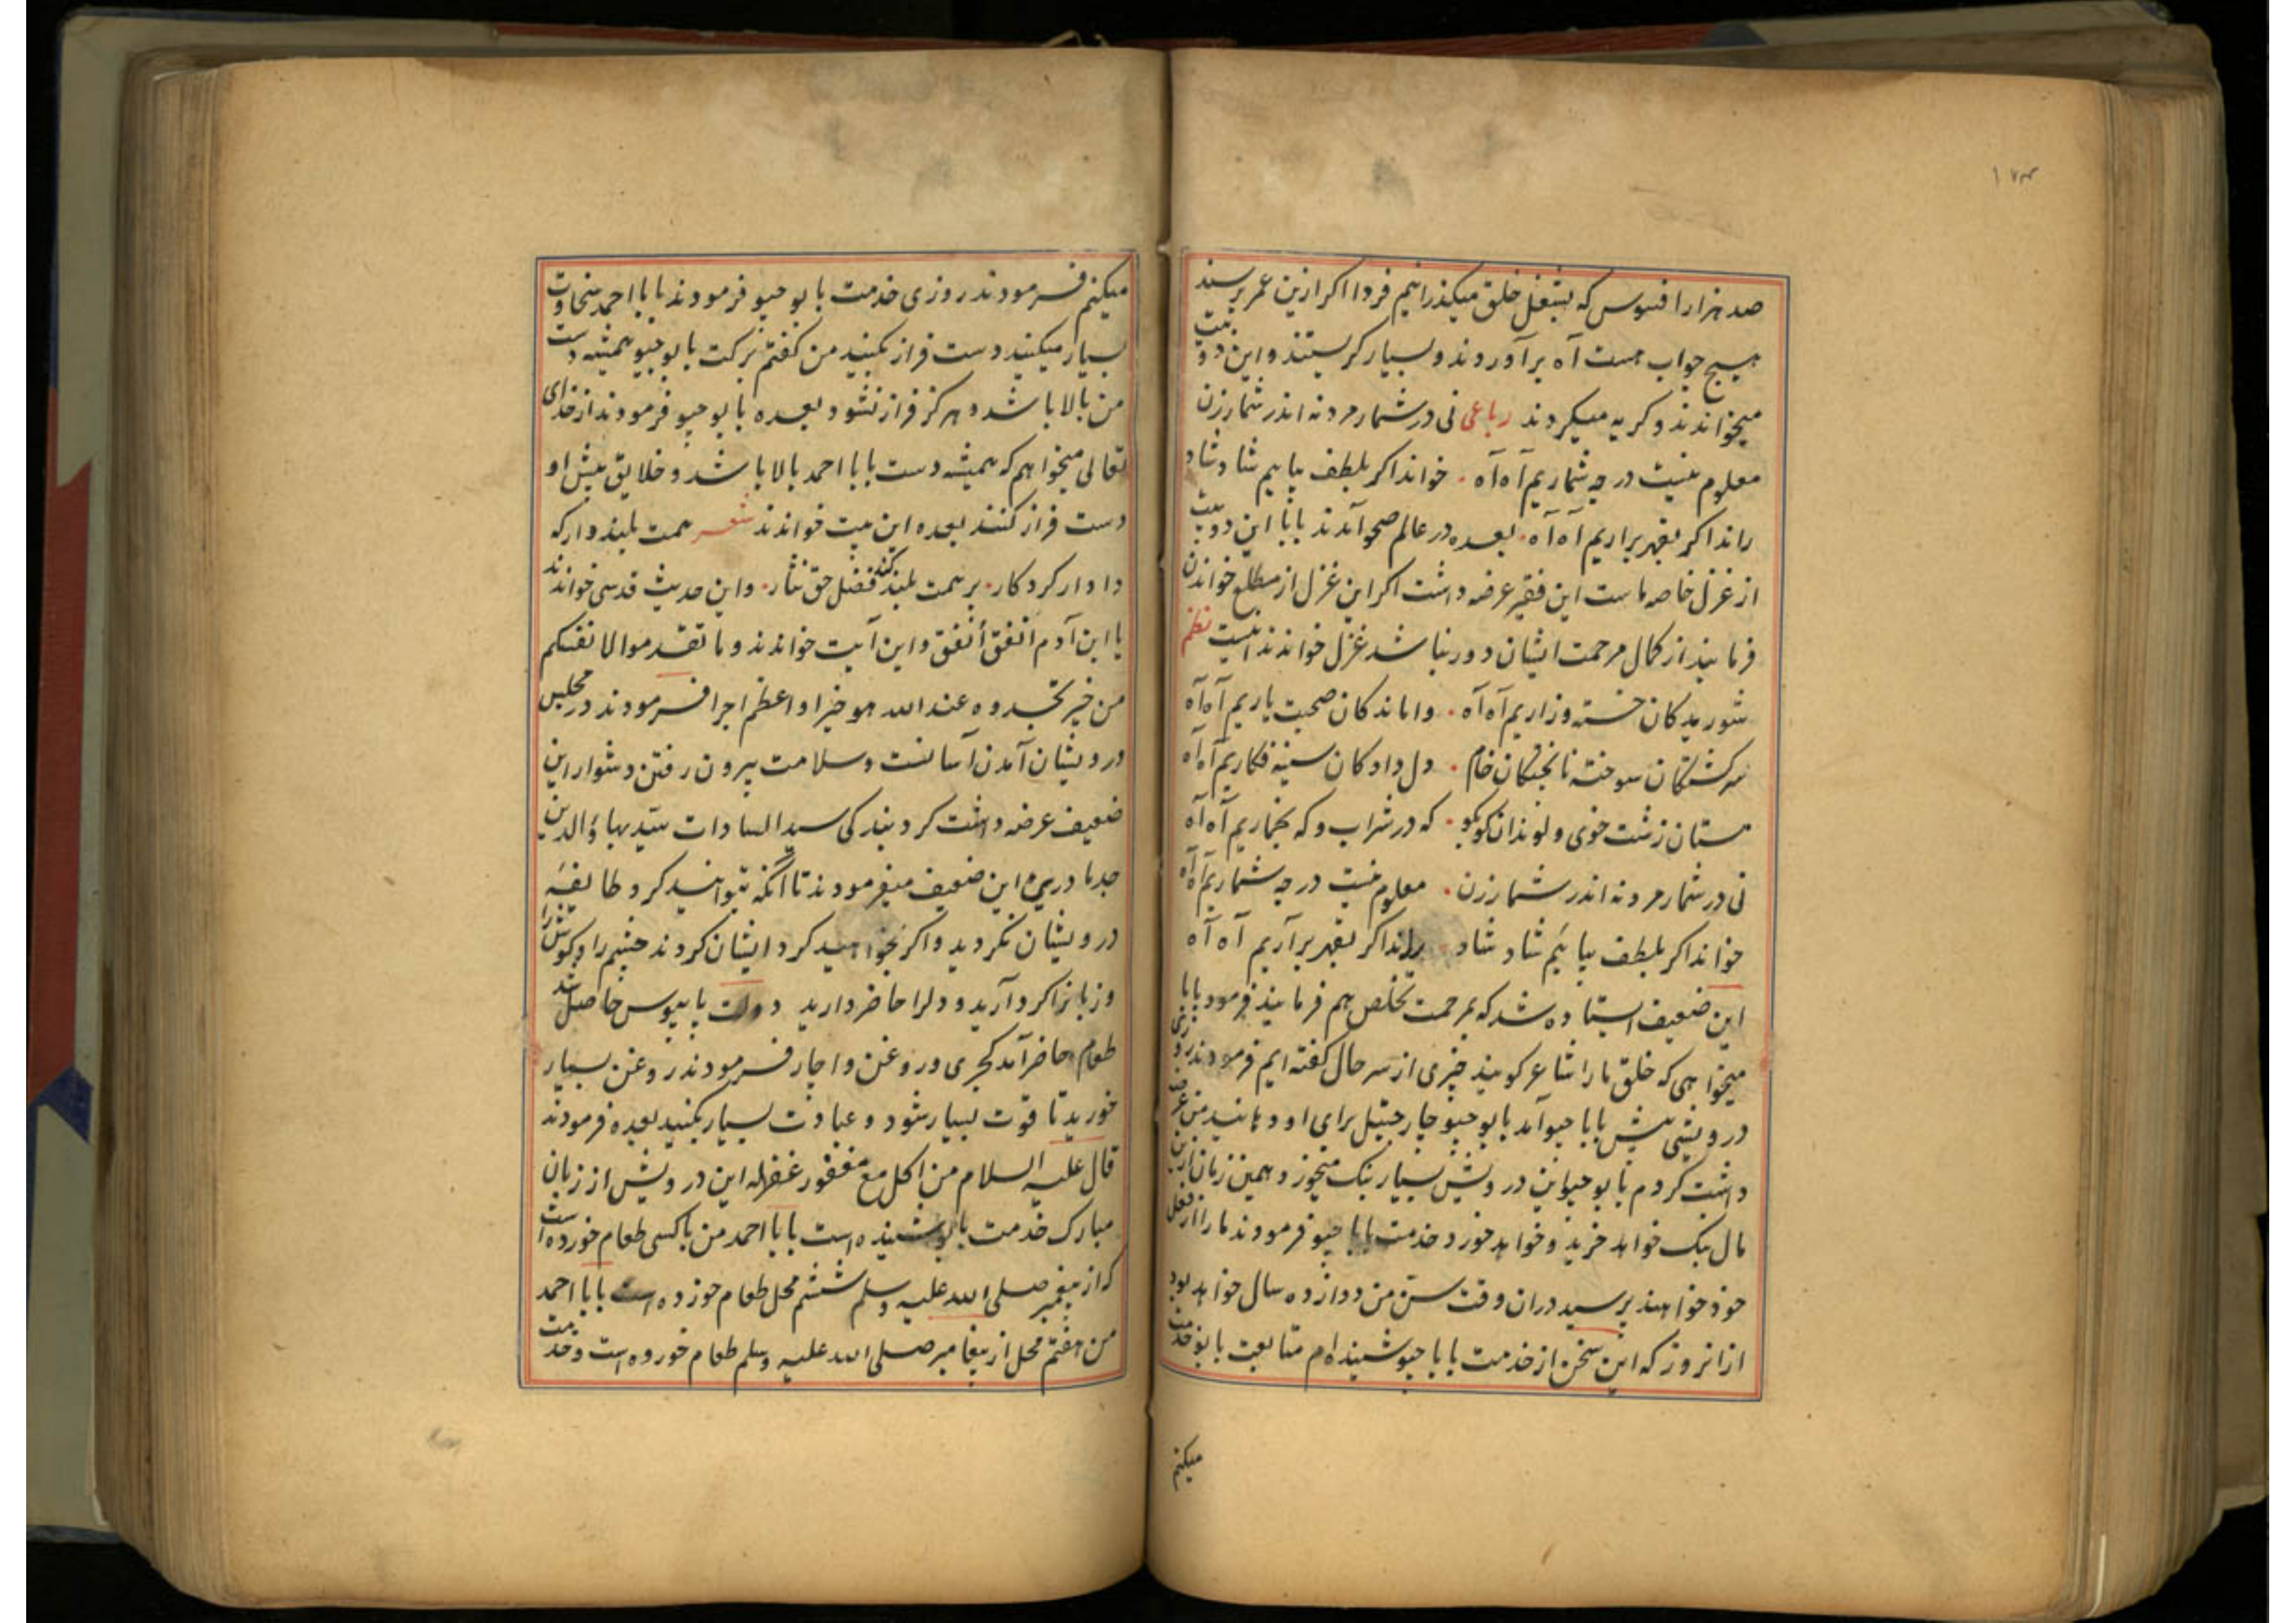 ۱۷۳
صد هزار افسوس که بشغل خلق میکذرانیم فردا اکر ازین عمر پرسند
هیچ جواب هست آه برآوردند و بسیار کریستند و این دو بیت
میخواندند و کریه میکردند رباعی نی در شمار مرد نه اندر شمار زن
معلوم نیست در چه شماریم آه آه خواند اکر بلطف بیاییم شاد شاد
راند اکر بقهر براریم آه آه بعده در عالم صحو آمدند بابا این دو بیت
از غزل خاصه ماست این فقیر عرضه داشت اکر این غزل از مطلع خواندن
فرمایند از کمال مرحمت ایشان دور نباشد غزل خواندند اینست نظم
شوریدکان خسته و زاریم آه آه واماندکان صحبت یاریم آه آه
سرکشتکان سوخته ناپختکان خام دل دادکان سینه فکاریم آه آه
مستان زشت خوی و لوندان کوبکو که در شراب و که بخماریم آه آه
نی در شمار مرد نه اندر شمار زن معلوم نیست در چه شماریم آه آه
خواند اکر بلطف بیائیم شاد شاد راند اکر بقهر برآریم آه آه
این ضعیف استاده شد که بمرحمت تخلص هم فرمایند فرمود بابا
میخواهی که خلق ما را شاعر کویند چیزی از سر حال کفته ایم فرمودند روزی
درویشی پیش بابا جیو آمد بابو جیو چار جیتل برای او دهانیدند من عرضه
داشت کردم بابو جیو این درویش بسیار بنک میخورد و همین زمان ازین
مال بنک خواهد خرید و خواهد خورد خدمت بابا جیو فرمودند ما را از فعل
خود خواهند پرسید دران وقت سن من دوازده سال خواهد بود
ازانروز که این سخن از خدمت بابا جیو شنیده ام متابعت بابو خدمت
میکنم
میکنم فرمودند روزی خدمت بابو جیو فرمودند بابا احمد سخاوت
بسیار میکنید دست فراز نکنید من کفتم برکت بابو جیو همیشه دست
من بالا باشد و هرکز فراز نشود بعده بابو جیو فرمودند از خدای
تعالی میخواهم که همیشه دست بابا احمد بالا باشد و خلایق پیش او
دست فراز کنند بعده این بیت خواندند شعر همت بلند دار که
دادار کردکار بر همت بلند کند فضل حق نثار واین حدیث قدسی خواندند
یا ابن آدم انفق أنفق واین آیت خواندند وما تقدموا لانفسکم
من خیر تجدوه عند الله هو خیرا و اعظم اجرا فرمودند در مجلس
درویشان آمدن آسانست و سلامت بیرون رفتن دشوار این
ضعیف عرضه داشت کرد بندکی سید السادات سید بهاؤ الدین
جد مادری این ضعیف میفرمودند تا آنکه بتوانید کرد طایفه
درویشان نکردید و اکر بخواهید کرد ایشان کردند چشم را و کوش را
و زبانرا کرد آرید و دلرا حاضر دارید دولت پایبوس حاصل شد
طعام حاضر آمد کجری و روغن و اچار فرمودند روغن بسیار
خورید تا قوت بسیار شود و عبادت بسیار بکنید بعده فرمودند
قال علیه السلام من اکل مع مغفور غفرله این درویش از زبان
مبارک خدمت بابو شنیده است بابا احمد من با کسی طعام خورده است
که از پیغمبر صلی الله علیه وسلم ششم محل طعام خورده است بابا احمد
من هفتم محل از پیغامبر صلی الله علیه وسلم طعام خورده است و خدمت